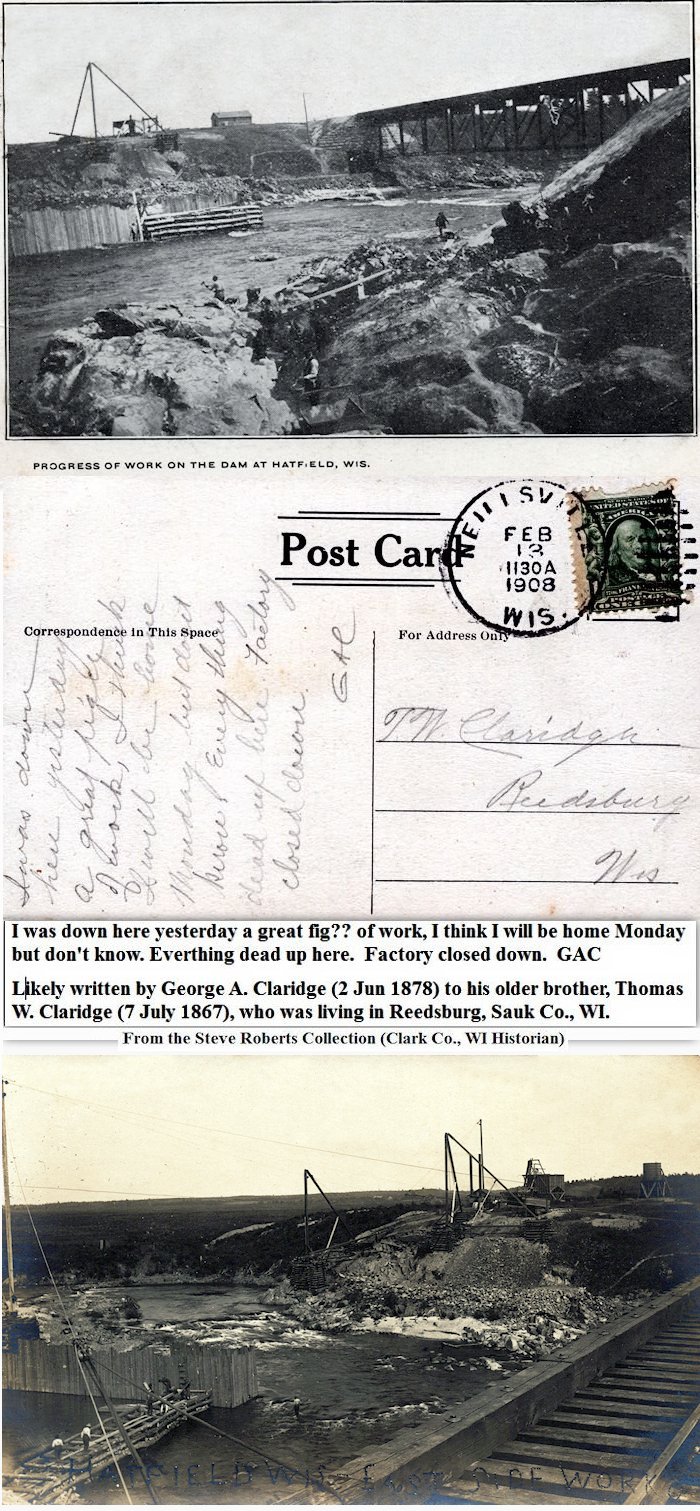 PROGRESS OF WORK ON THE DAM AT HATFIELD, WIS.
Post Card
NEILLSVILLE
FEB
13
1130A
1908
WIS.
UNITED STATES OF
AMERICA
POSTAGE
Correspondence in This Space
For Address Only
I was down
here yesterday
a great
of work, I think
I will be home
Monday but dont
know. Every thing
dead up here. Factory
closed down.
GAC
T.W. Claridge
Reedsburg
Wis
I was down here yesterday a great fig?? of work, I think I will be home Monday
but don't know. Everthing dead up here. Factory closed down. GAC
Likely written by George A. Claridge (2 Jun 1878) to his older brother, Thomas
W. Claridge (7 July 1867), who was living in Reedsburg, Sauk Co., WI.
From the Steve Roberts Collection (Clark Co., WI Historian)
HATFIELD WIS EAST SIDE WORKS